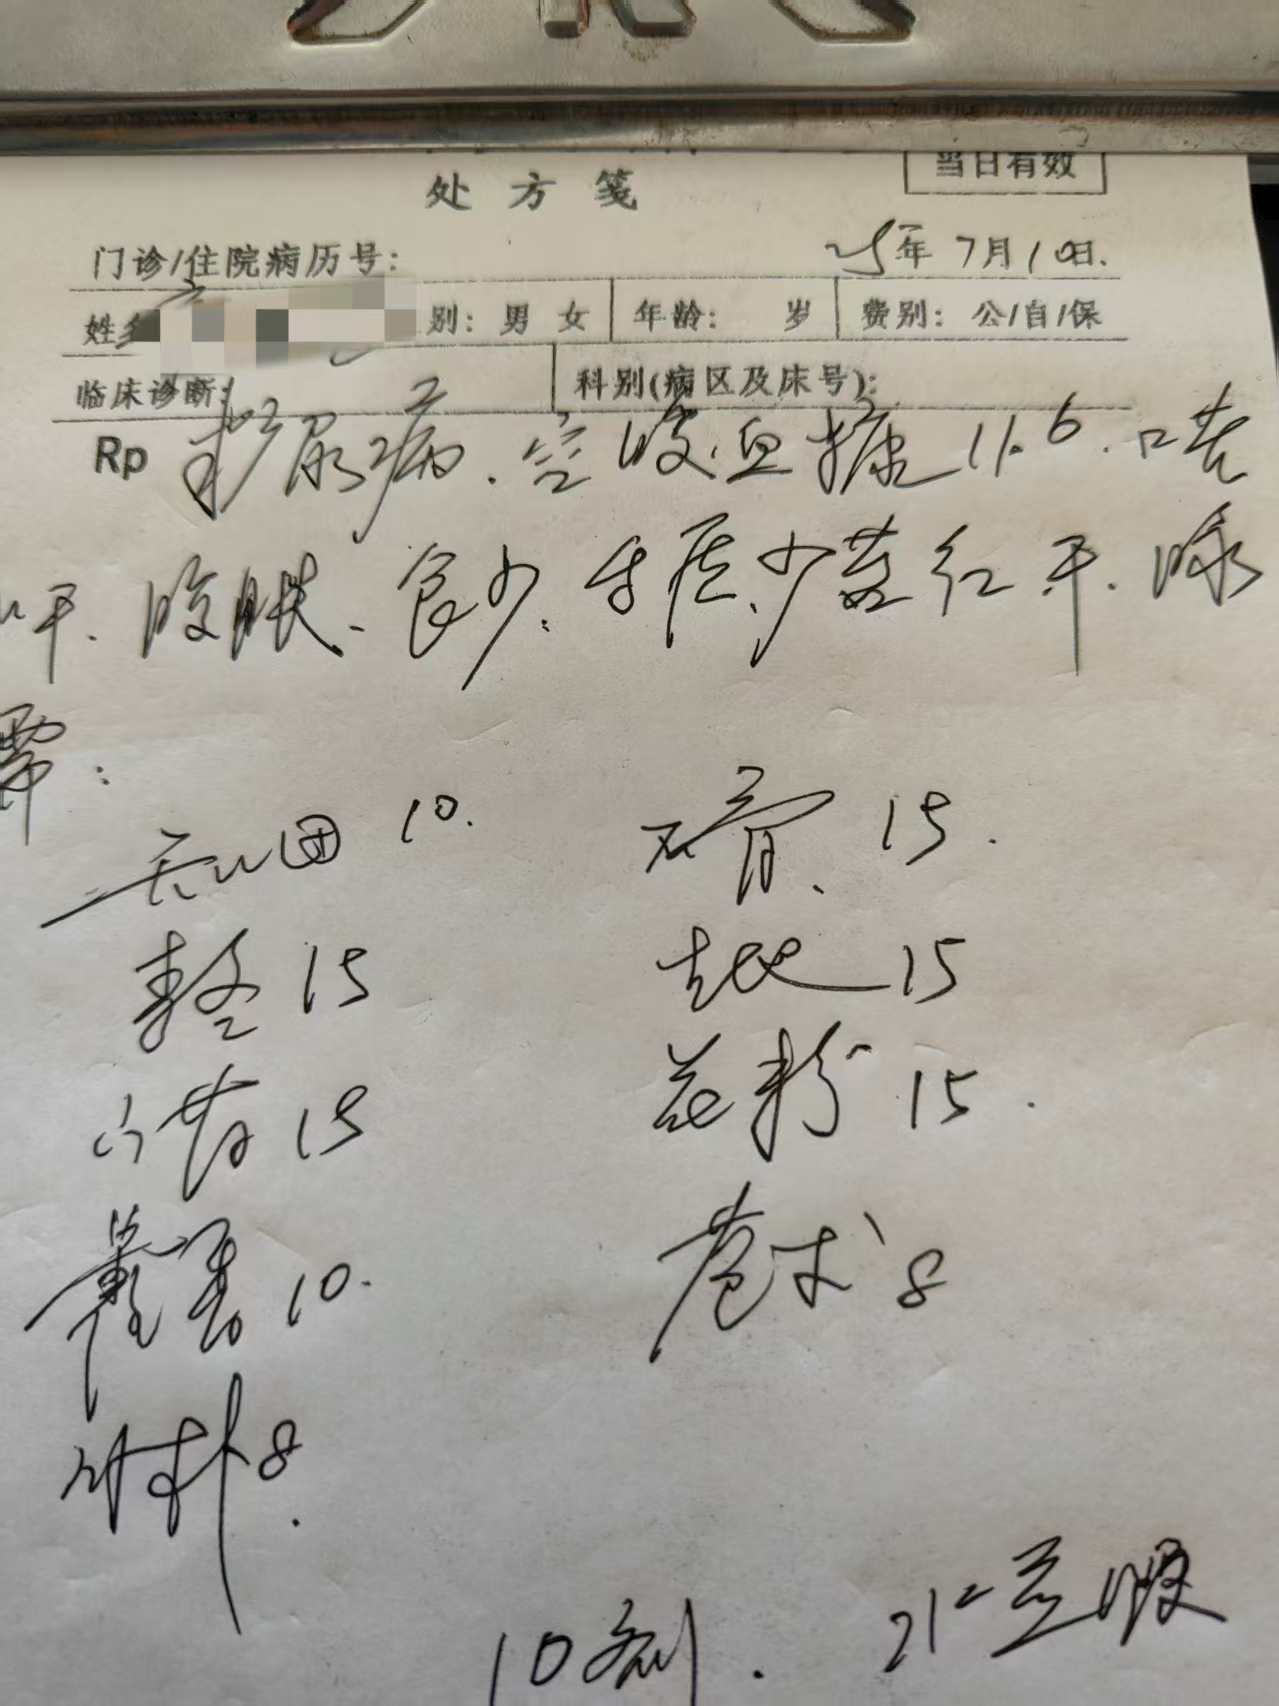 处方笺 当日有效
门诊/住院病历号: 25年7月10日.
姓 别: 男 女 年龄: 岁 费别: 公/自/保
临床诊断: 科别(病区及床号):
Rp 糖尿病、空腹血糖11.6、口苦
口干、腹胀、食少、舌质少苔红干、脉
10. 石膏、15.
15 生地 15
白芍 15 花粉 15.
藿香 10. 苍术 8
川朴 8.
10剂.